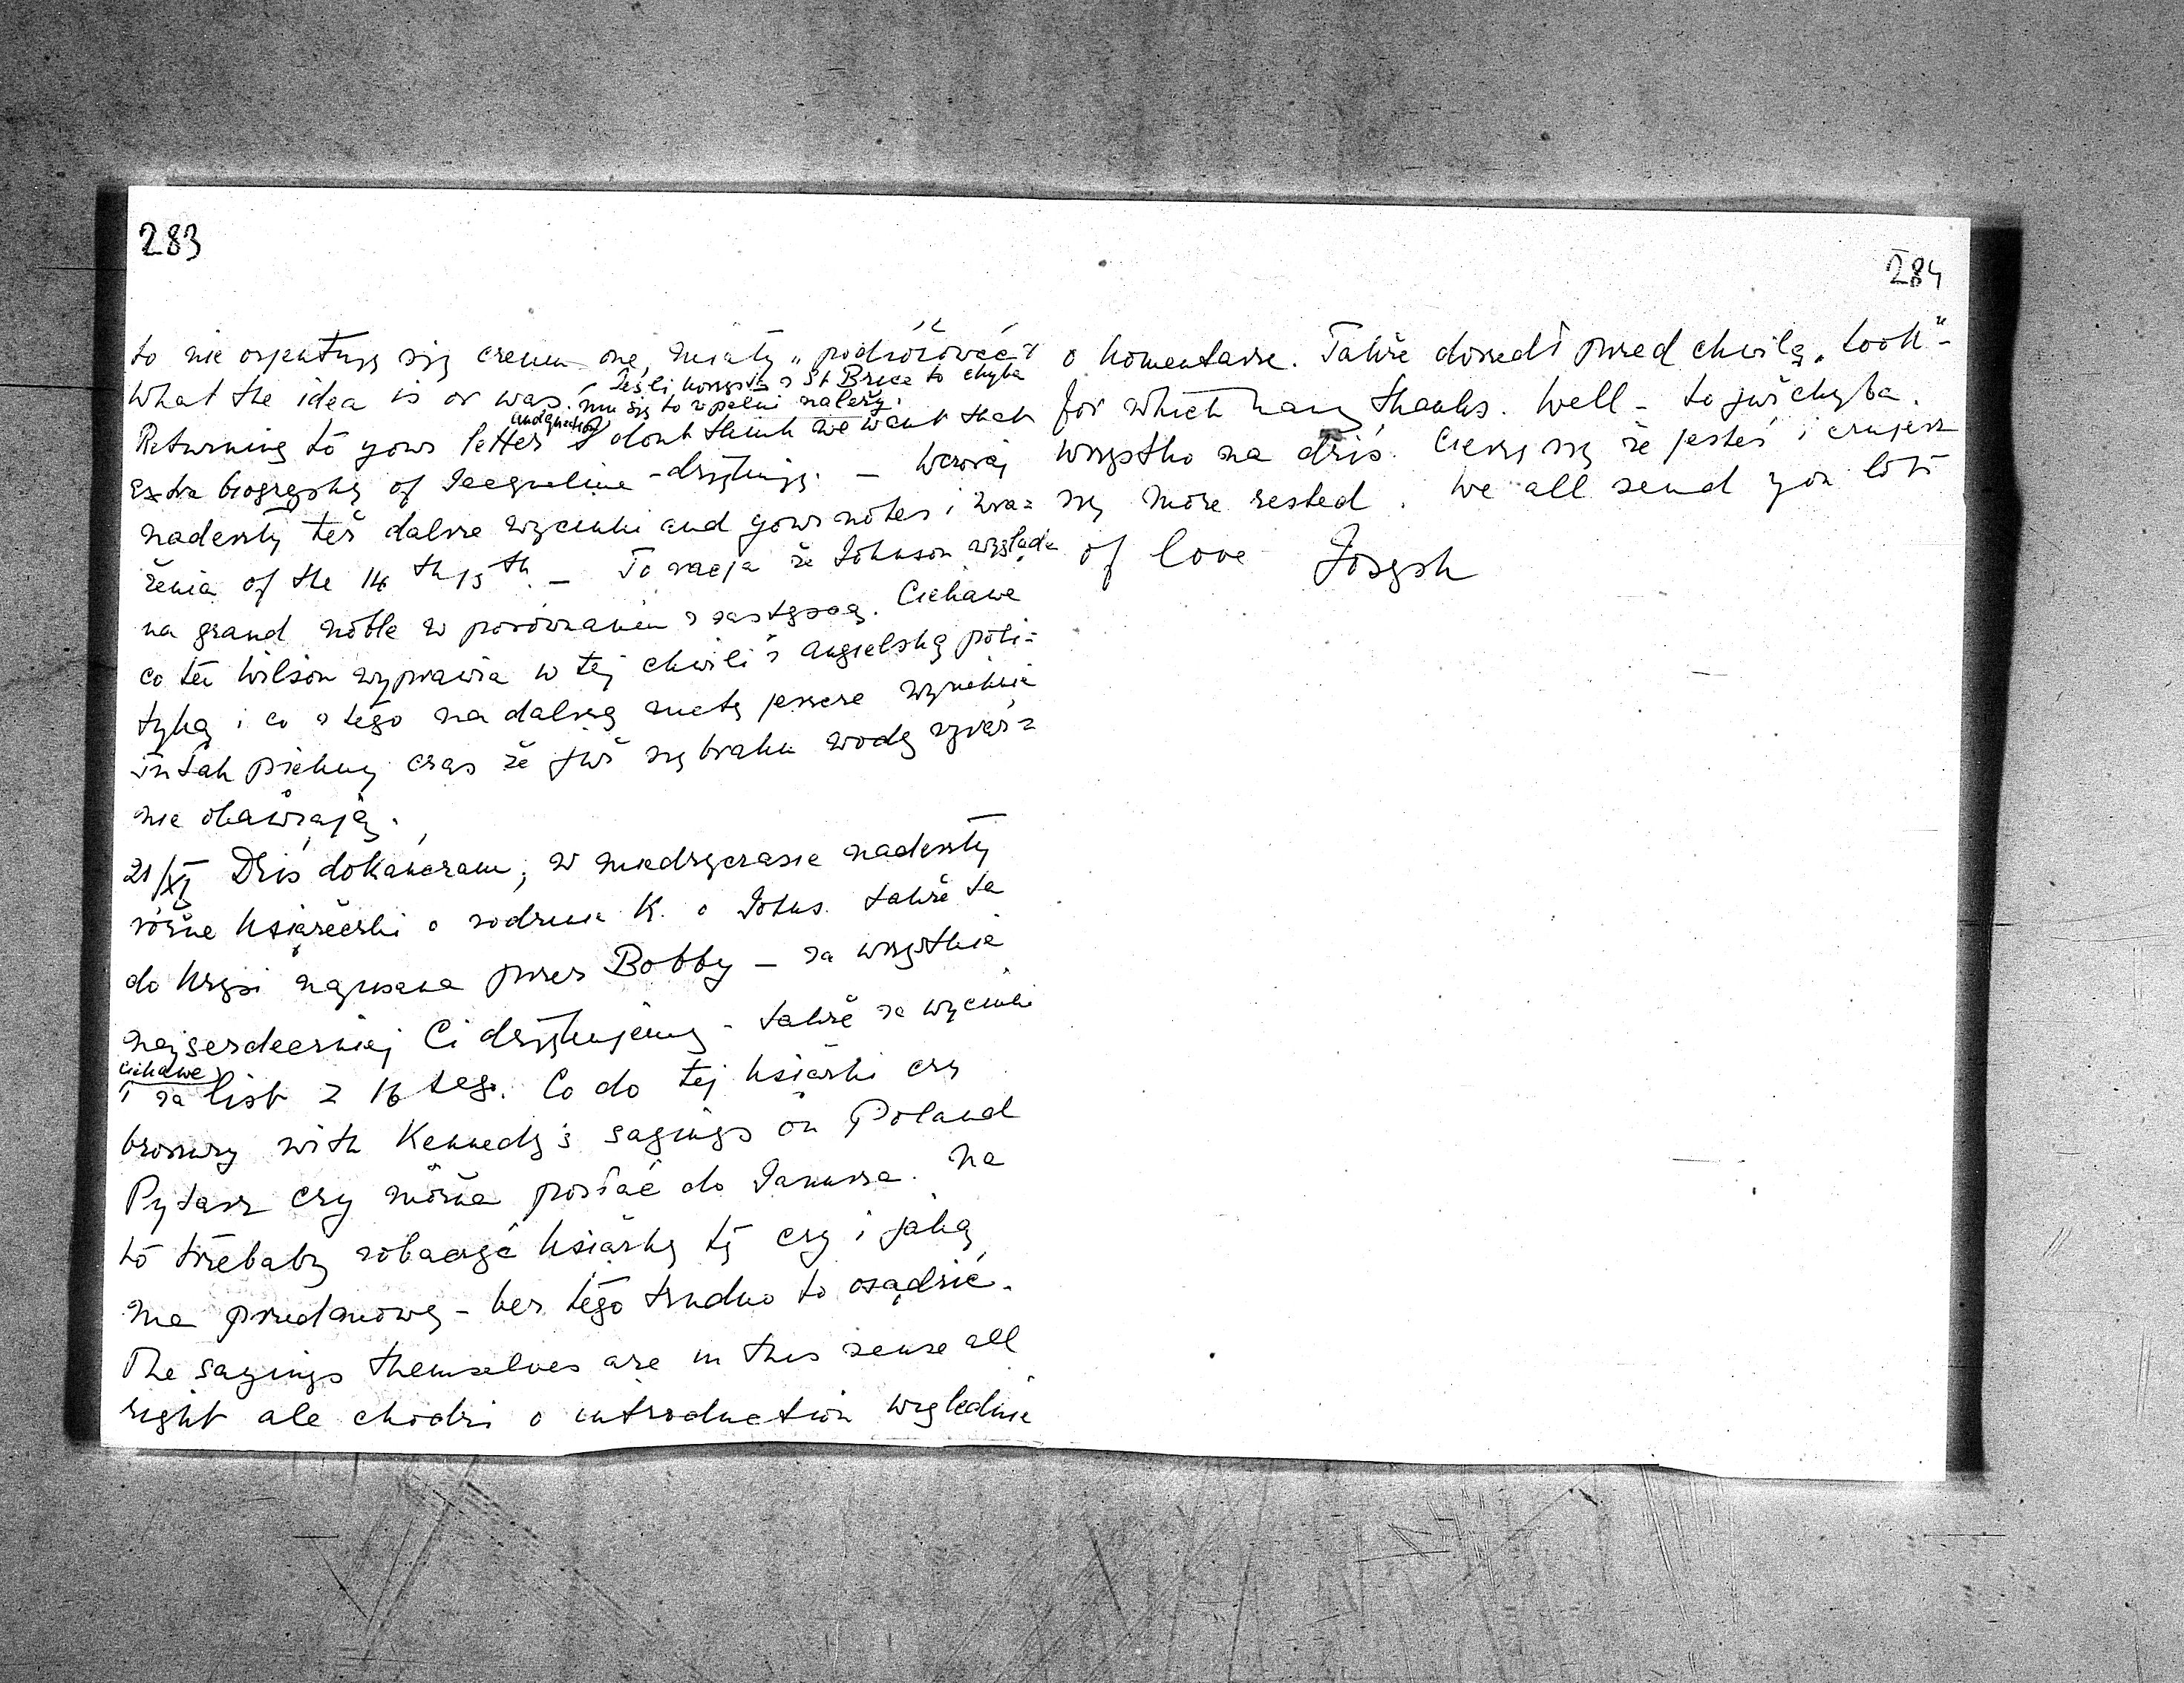 283
to nie orjentuję się czemu one miały „podróżować"
What the idea is or was. Jeśli korzysta z St Brice to chyba
mu się to w pełni należy.
Returning to your letter and question I dont think we want that
extra biography of Jacqueline - dziękuję. - Wczoraj
nadeszły też dalsze wycinki and your notes i wra=
żenia of the 14th 15th. - To racja że Johnson wygląda
na grand noble w porównaniu z zastępcą. Ciekawe
co ten Wilson wyprawia w tej chwili z angielską poli=
tyką i co z tego na dalszą metę jeszcze wyniknie
tak piękny czas że już się braku wody
nie obawiają.
21/XI Dziś dokańczam, w międzyczasie nadeszły
różne książeczki o rodzinie K. o Johns. także ta
do Krysi napisana przez Bobby - za wszystkie
najserdeczniej Ci dziękujemy - także za wycinki
i za ciekawe list z 16 teg. Co do tej książki czy
broszury with Kennedy's sayings on Poland
Pytasz czy można posłać do Janusza. Na
to trzebaby zobaczyć książkę tę czy i jaką
ma przedmowę - bez tego trudno to osądzić.
The sayings themselves are in this sense all
right ale chodzi o introduction względnie
284
o komentarze. Także doszedł przed chwilą „Look" -
for which many thanks. Well - to już chyba
wszystko na dziś. Cieszę się że jesteś i czujesz
się more rested. We all send you lots
of love Joseph